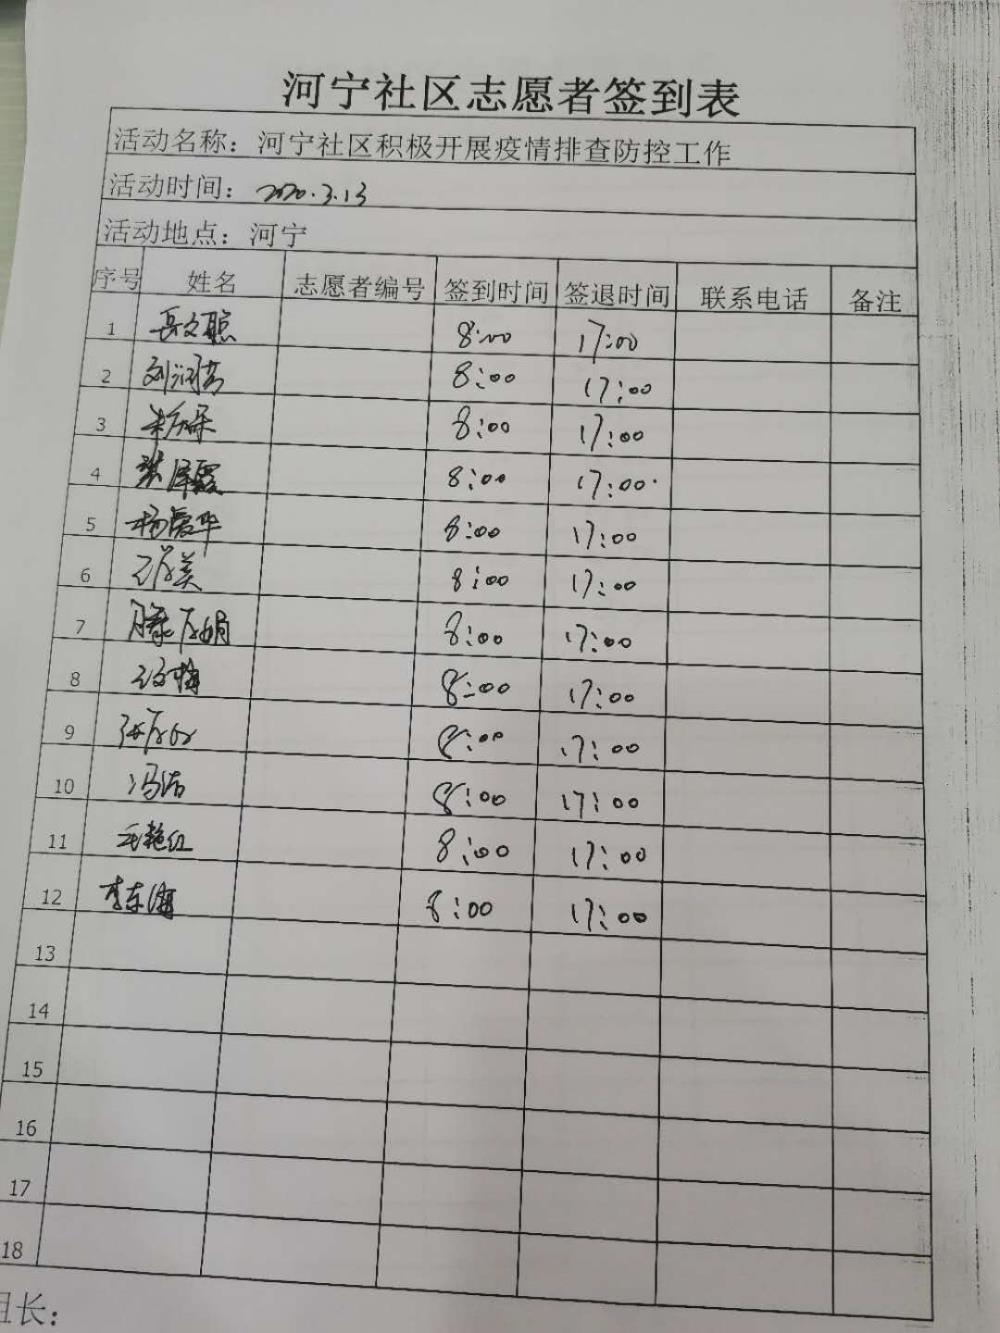 河宁社区志愿者签到表
活动名称：河宁社区积极开展疫情排查防控工作
活动时间：2020.3.13
活动地点：河宁
序号 姓名 志愿者编号 签到时间 签退时间 联系电话 备注
1 8:00 17:00
2 8:00 17:00
3 8:00 17:00
4 8:00 17:00
5 8:00 17:00
6 8:00 17:00
7 8:00 17:00
8 8:00 17:00
9 8:00 17:00
10 冯洁 8:00 17:00
11 毛艳红 8:00 17:00
12 李东海 8:00 17:00
13
14
15
16
17
18
组长：